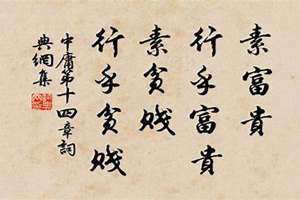 素富貴
行乎富貴
素貧賤
行乎貧賤
中庸第十四章詞
典綱集